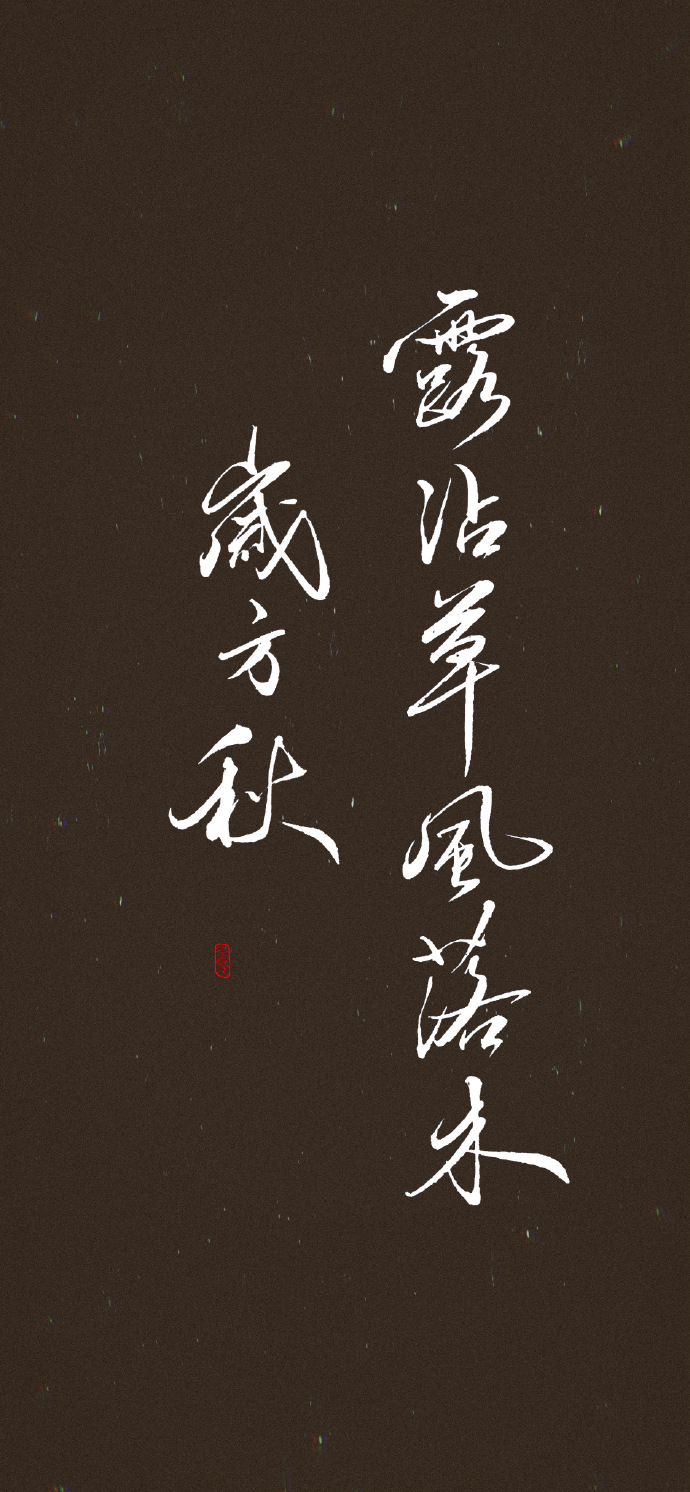 露沾草風落木
歲方秋